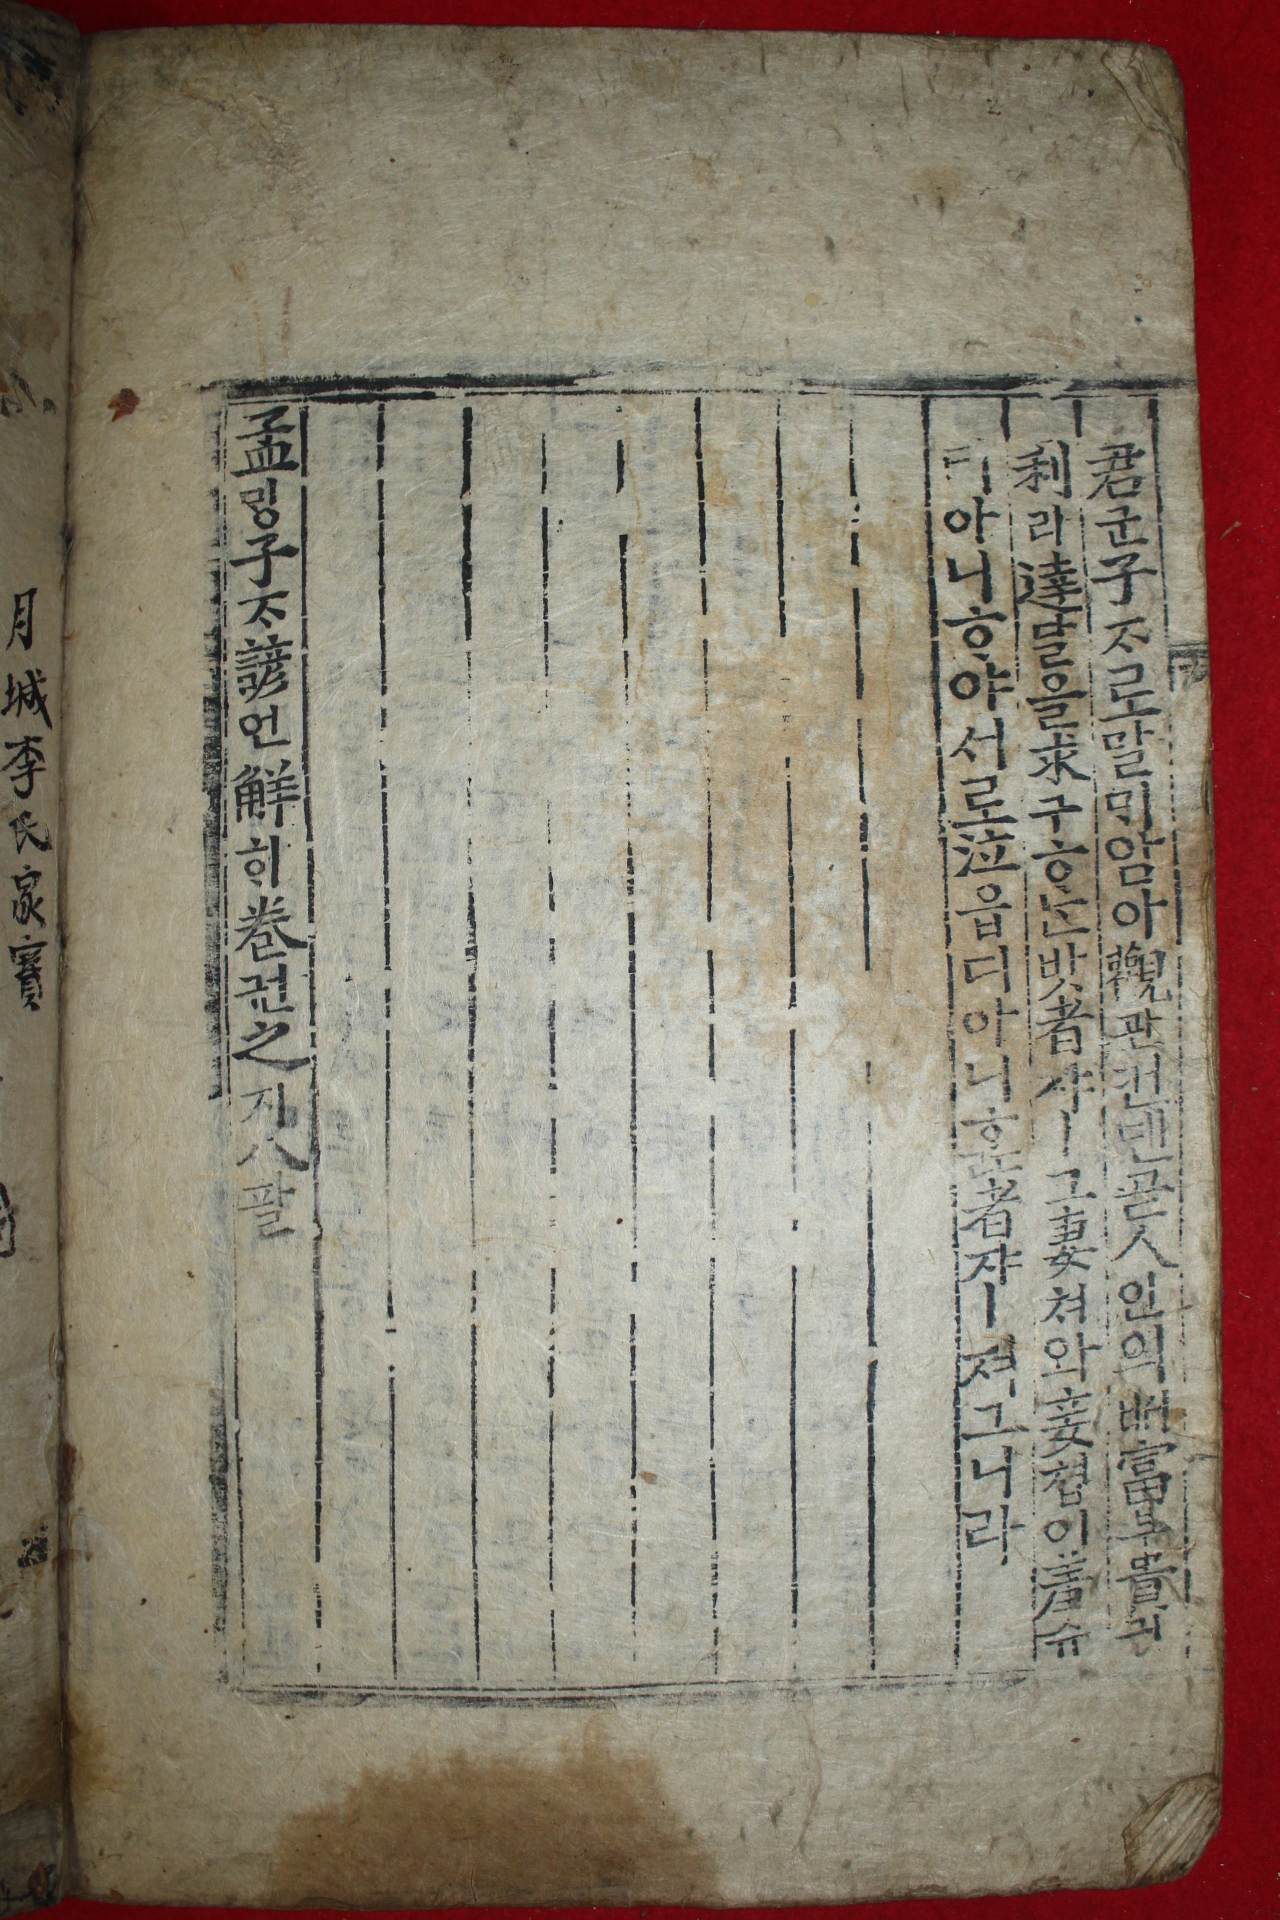 君군子ᄌᆞ로말ᄆᆡ암아觀관컨덴곧人인의ᄡᅥ富부貴귀
利라達달을求구ᄒᆞᄂᆞᆫ밧者쟈ㅣ그妻쳐와妾쳡이羞슈
티아니ᄒᆞ야서로泣읍디아니ᄒᆞᆫ者쟈ㅣ져그니라
孟밍子ᄌᆞ諺언解ᄒᆡ卷권之지八팔
月城李氏家寶